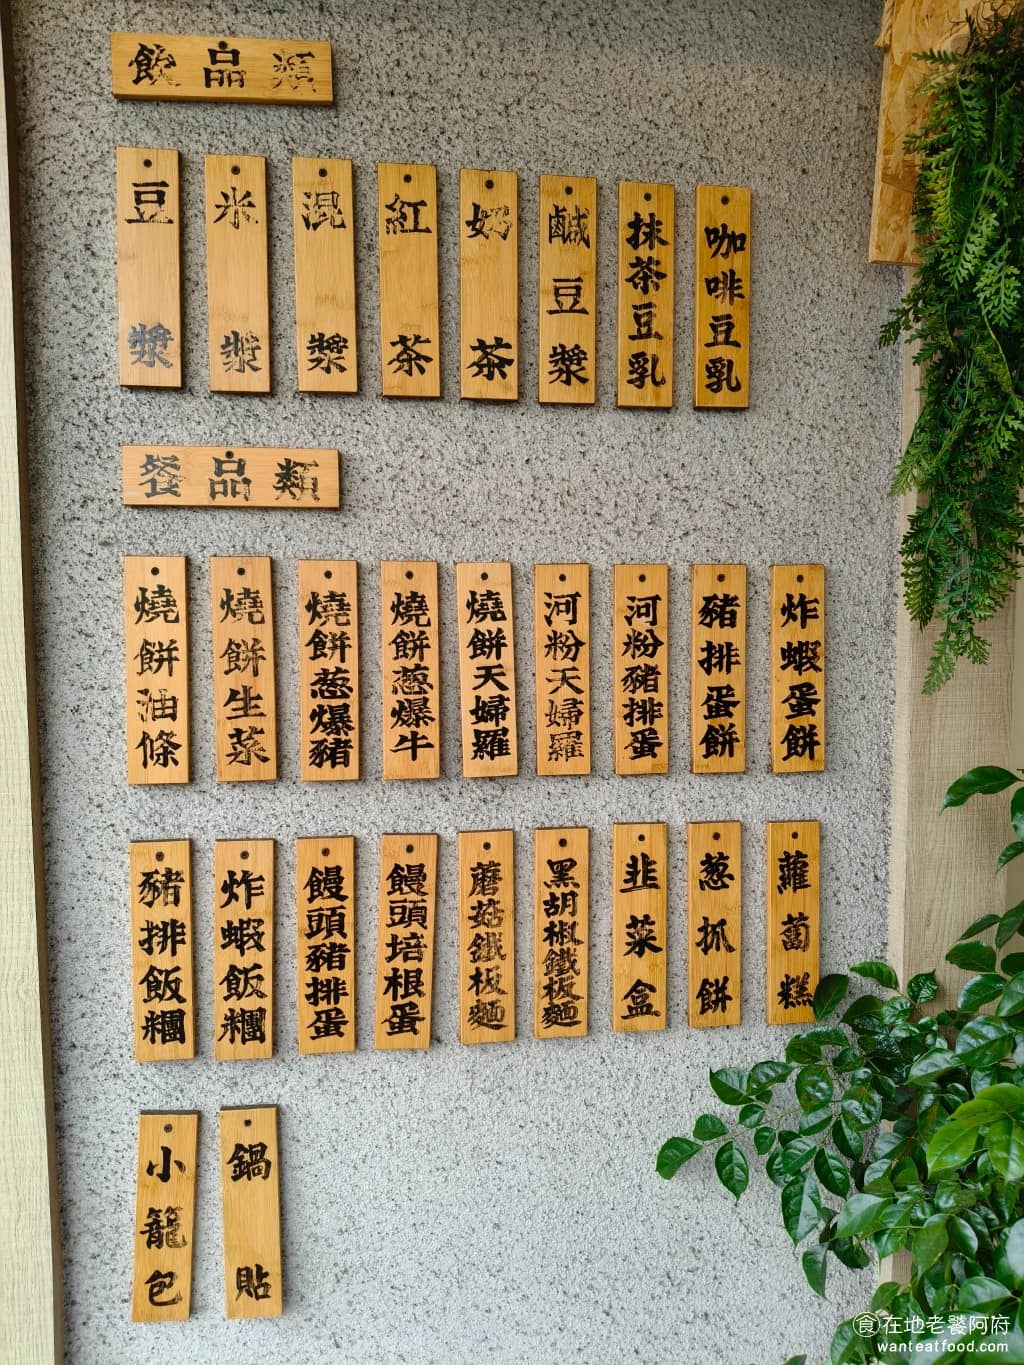 飲品類
豆漿
米漿
混漿
紅茶
奶茶
鹹豆漿
抹茶豆乳
咖啡豆乳
餐品類
燒餅油條
燒餅生菜
燒餅蔥爆豬
燒餅蔥爆牛
燒餅天婦羅
河粉天婦羅
河粉豬排蛋
豬排蛋餅
炸蝦蛋餅
豬排飯糰
炸蝦飯糰
饅頭豬排蛋
饅頭培根蛋
蘑菇鐵板麵
黑胡椒鐵板麵
韭菜盒
葱抓餅
蘿蔔糕
小籠包
鍋貼
食在地老饕阿府
wanteatfood.com